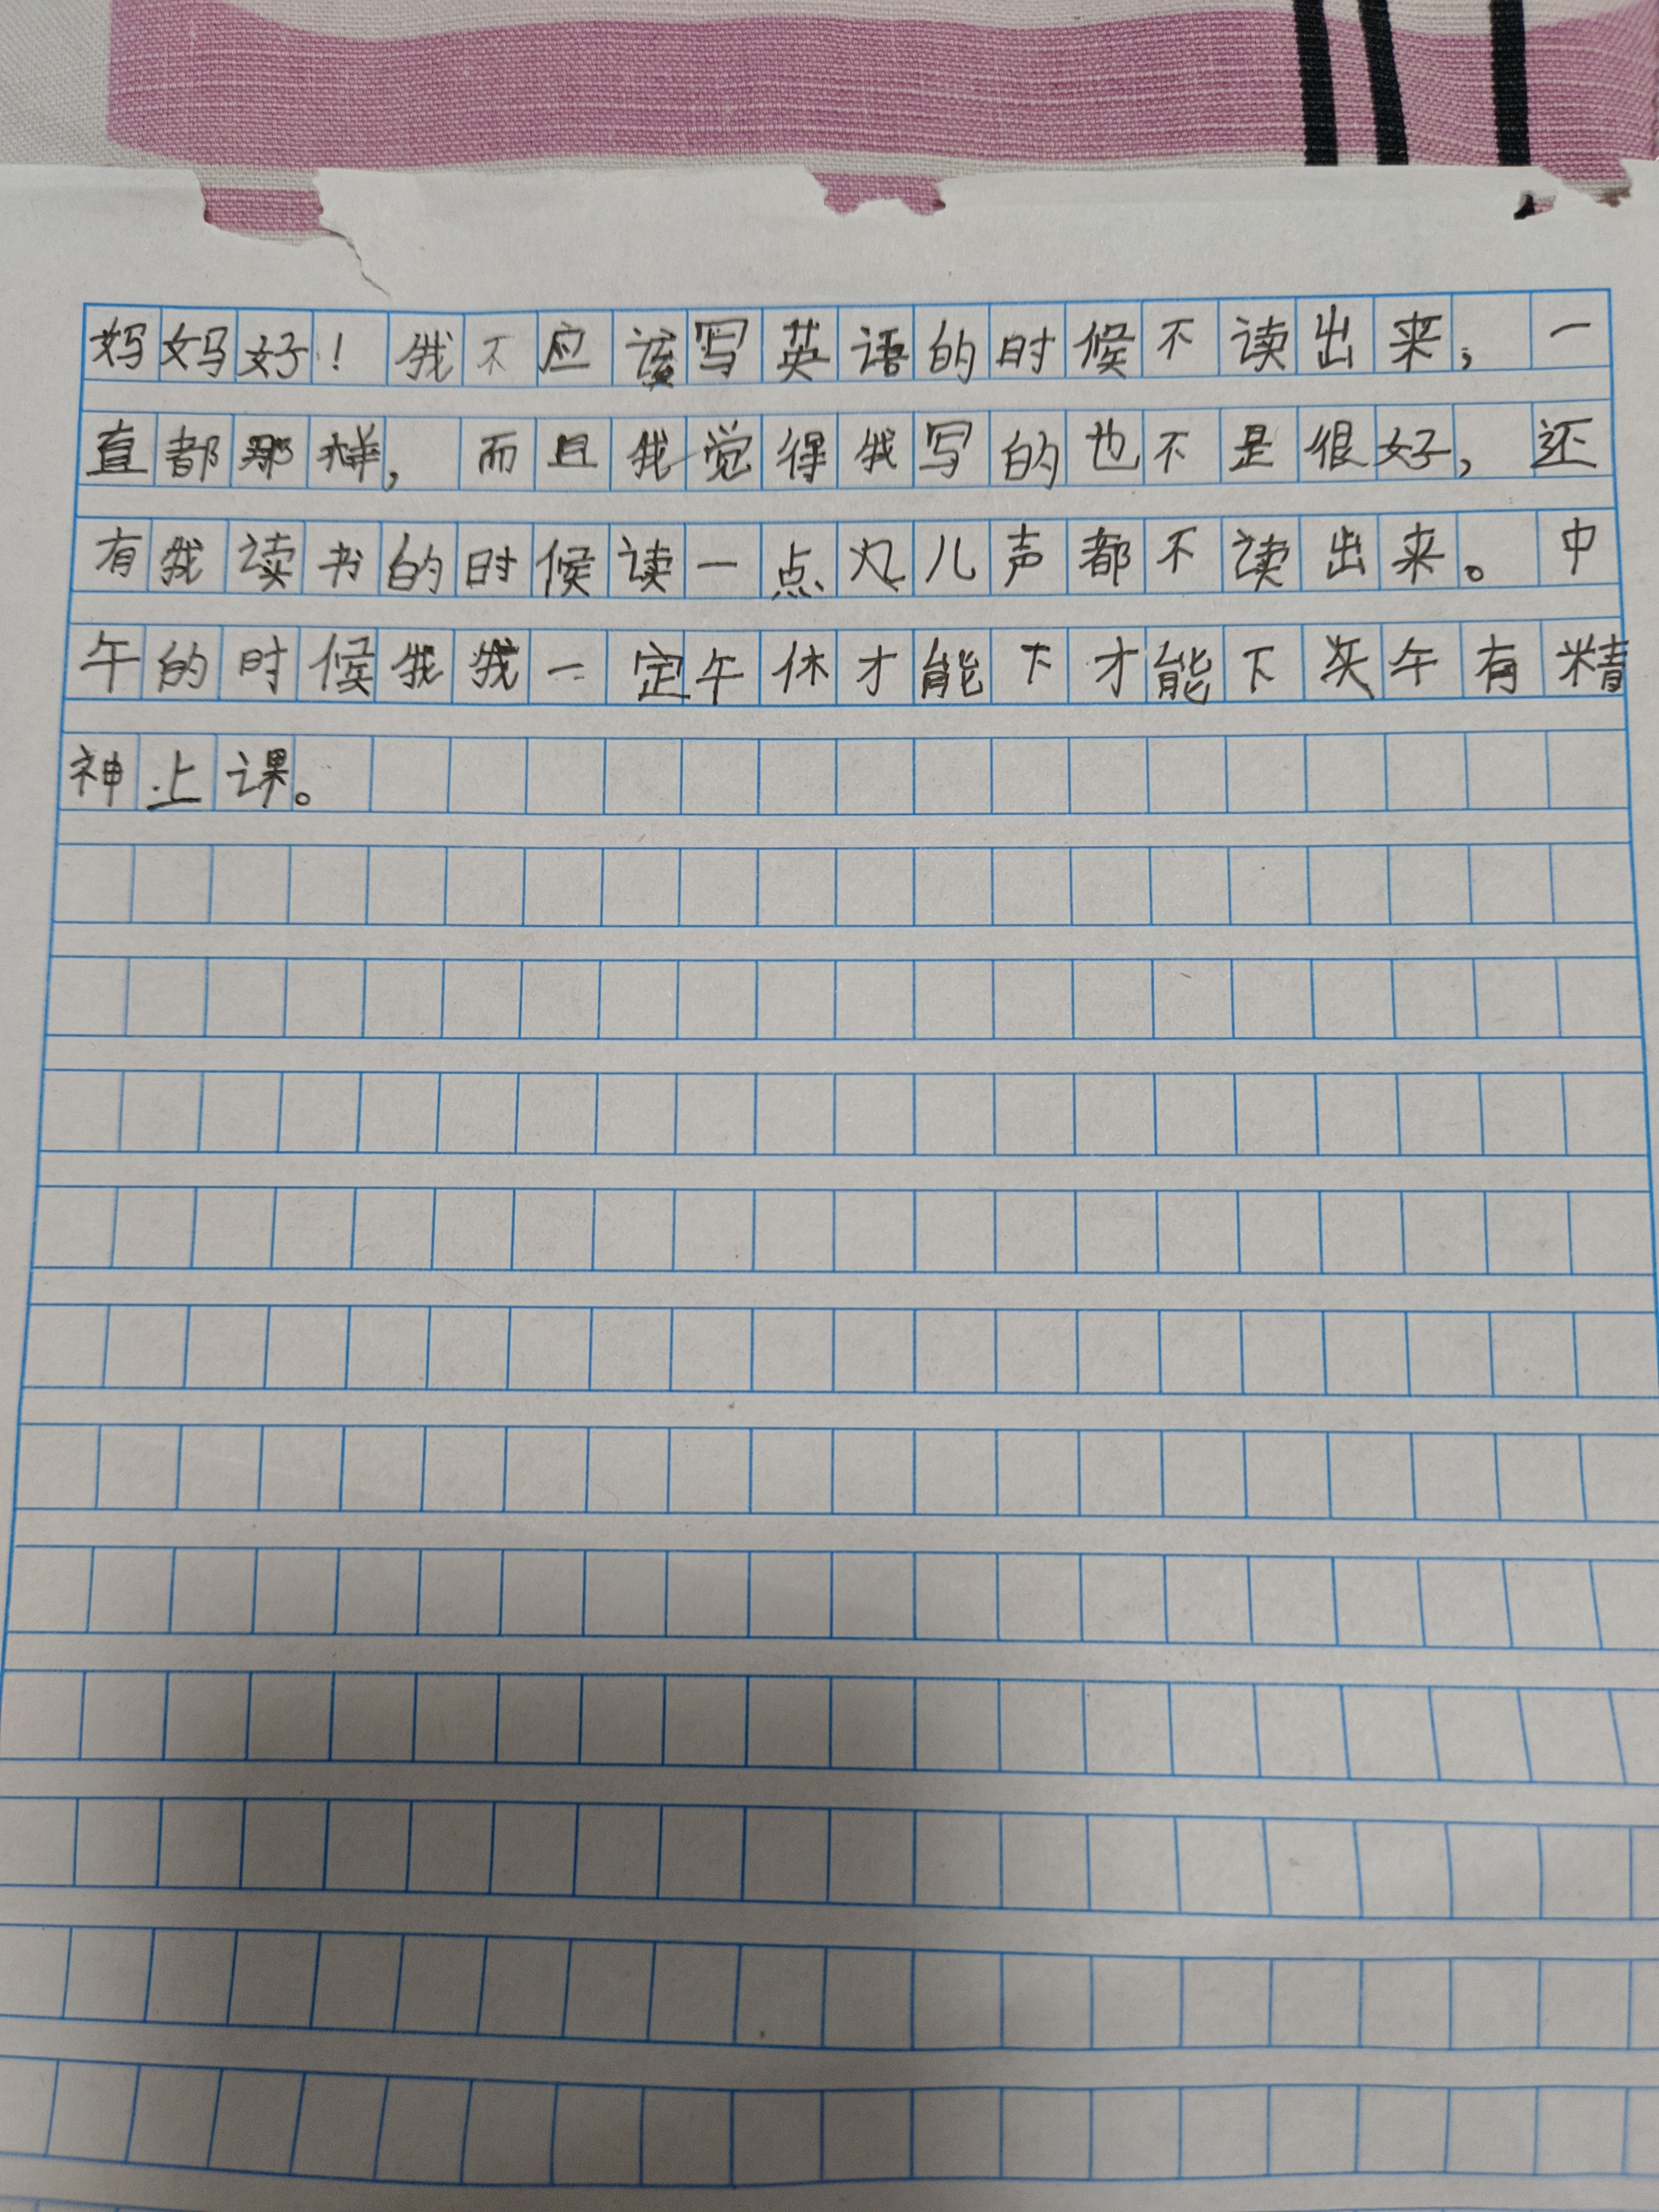 妈妈好！我不应该写英语的时候不读出来，一
直都那样，而且我觉得我写的也不是很好，还
有我读书的时候读一点儿声都不读出来。中
午的时候我我一定午休才能下才能下午有精
神上课。